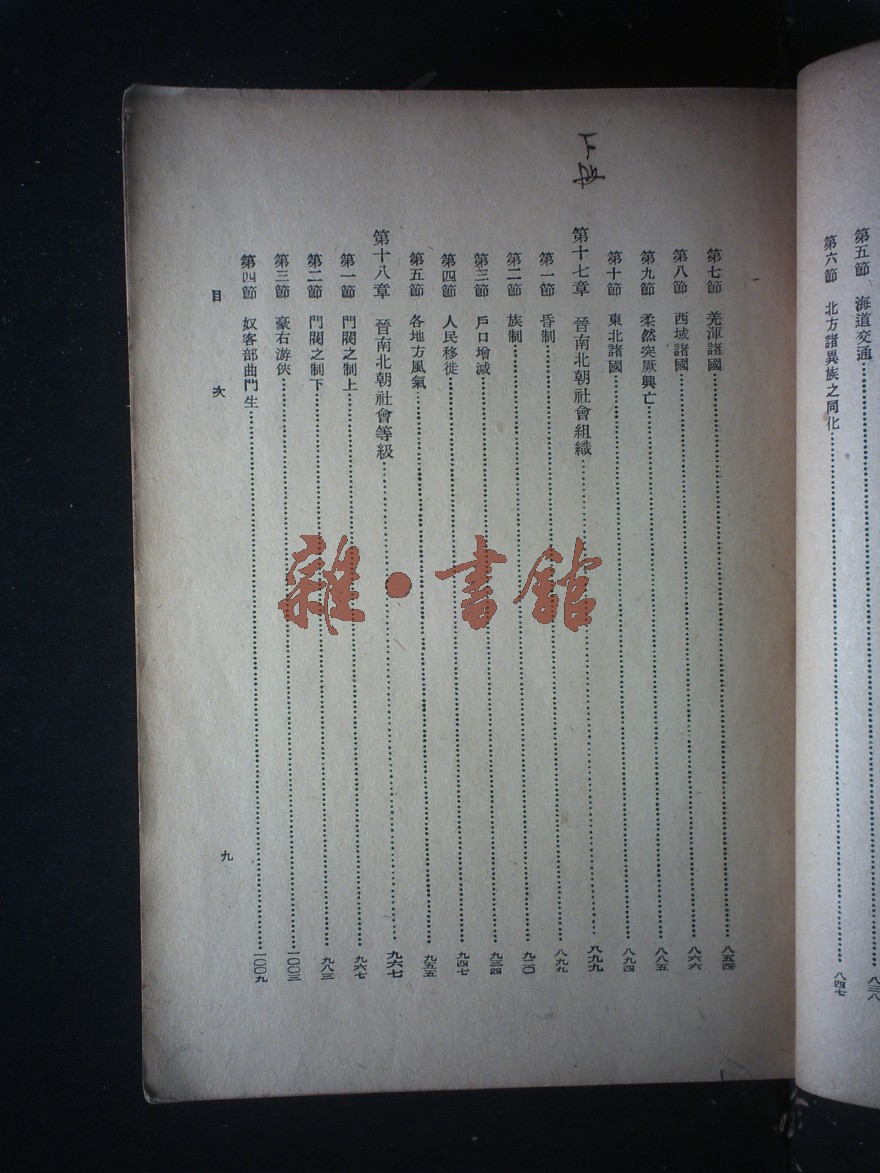 第五節　海道交通……八三八
第六節　北方諸異族之同化……八四七
下
第七節　羌渾諸國……八五四
第八節　西域諸國……八六六
第九節　柔然突厥興亡……八八五
第十節　東北諸國……八九四
第十七章　晉南北朝社會組織……八九九
第一節　昏制……八九九
第二節　族制……九二〇
第三節　戶口增減……九三四
第四節　人民移徙……九四七
第五節　各地方風氣……九五五
第十八章　晉南北朝社會等級……九六七
第一節　門閥之制上……九六七
第二節　門閥之制下……九八三
第三節　豪右游俠……一〇〇三
第四節　奴客部曲門生……一〇〇九
目次
九
雜·書館